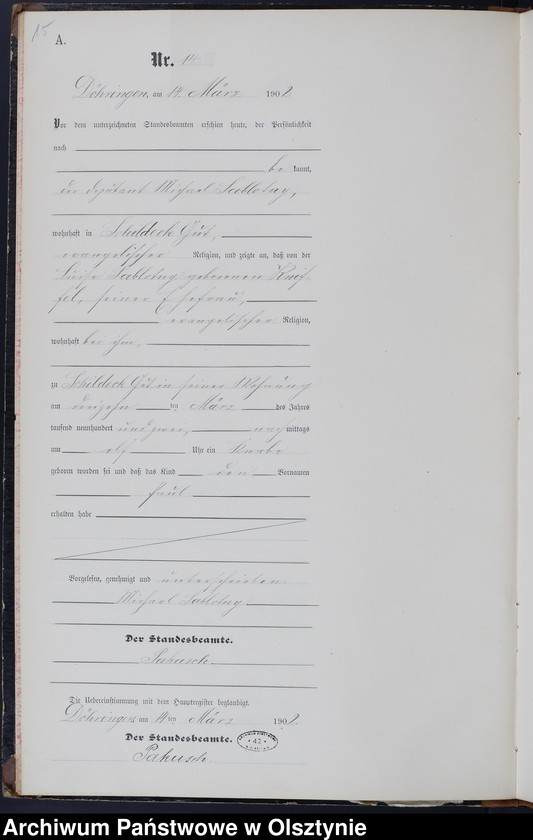 15
A.
Nr. 14
Döhringen, am 14. März 1902.
Vor dem unterzeichneten Standesbeamten erschien heute, der Persönlichkeit
nach
be kannt,
der Deputant Michael Sablotny,
wohnhaft in Schildeck Gut,
evangelischer Religion, und zeigte an, daß von der
Luise Sablotny geborenen
seiner Ehefrau,
evangelischer Religion,
wohnhaft bei ihm,
zu Schildeck Gut in seiner Wohnung
am dreizehn ten März des Jahres
tausend neunhundert und zwei, nach mittags
um elf Uhr ein Knabe
geboren worden sei und daß das Kind den Vornamen
Paul
erhalten habe
Vorgelesen, genehmigt und unterschrieben
Michael Sablotny
Der Standesbeamte.
Pakusch
Die Uebereinstimmung mit dem Hauptregister beglaubigt.
Döhringen am 14 ten März 1902.
Der Standesbeamte.
42
Pakusch
Archiwum Państwowe w Olsztynie